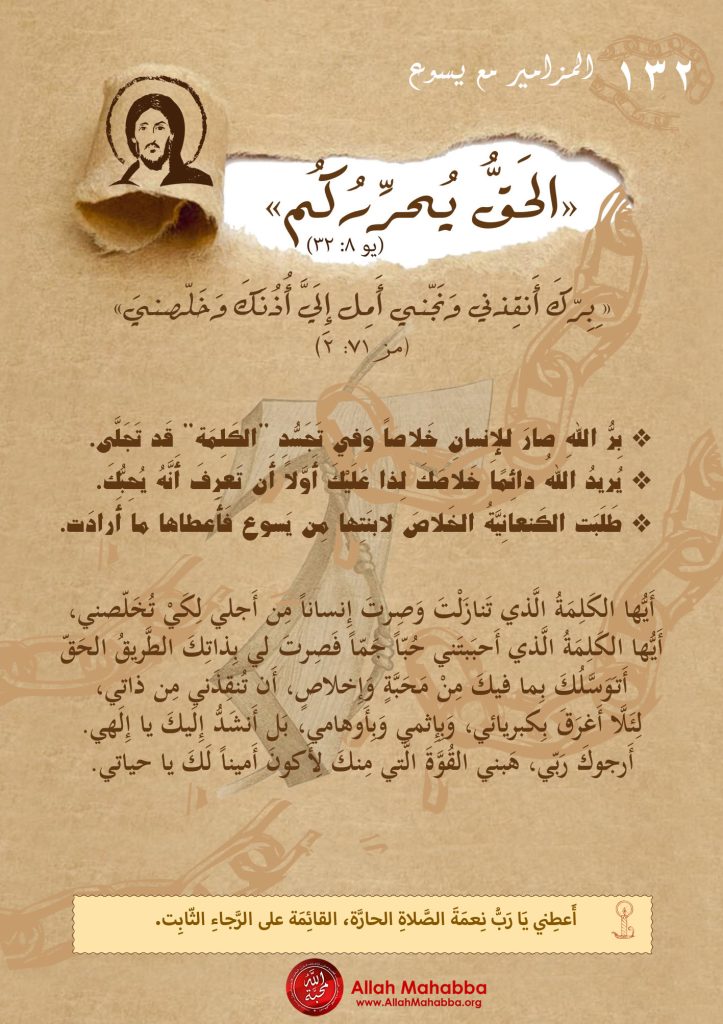 ١٣٢ المزامير مع يسوع
«الحَقُّ يُحرِّرُكُم»
(يو ٨: ٣٢)
«بِبِرِّكَ أَنقِذني وَنَجّني أَمِل إِلَيَّ أُذُنَكَ وَخَلّصنيَ»
(مز ٧١: ٢)
❖ بِرُّ اللهِ صارَ للإنسان خَلاصاً وَفي تَجَسُّدِ "الكَلمَة" قَد تَجَلَّى.
❖ يُريدُ اللهُ دائِمًا خَلاصَكَ لِذا عَلَيْكَ أَوَّلاً أَن تَعرِفَ أَنَّهُ يُحِبُّكَ.
❖ طَلَبَت الكَنعانِيَّةُ الخَلاصَ لابنَتها مِن يَسوع فَأعطاها ما أَرادَت.
أَيُّها الكَلِمَةُ الَّذي تَنازَلْتَ وَصِرتَ إِنساناً مِن أَجلي لِكَيْ تُخَلّصني،
أَيُّها الكَلِمَةُ الَّذي أَحبَبتَني حُبّاً جَمّاً فَصِرتَ لي بِذاتِكَ الطَّريقُ الحَقّ
أَتوَسَّلُكَ بِما فيكَ مِنْ مَحَبَّةٍ وَإخلاصٍ، أَن تُنقِذَني مِن ذاتي،
لِئَلَّا أَغرَقَ بِكبريائي، وَبِإثمي وَبِأَوهامي، بَل أَنشَدُّ إِلَيكَ يا إِلَهي.
أَرجوكَ رَبّي، هَبني القُوَّةَ الَّتي مِنكَ لأَكونَ أَميناً لَكَ يا حياتي.
أَعطِني يَا رَبُّ نِعمَةَ الصَّلاةِ الحارَّة، القائِمَة على الرَّجاءِ الثّابِت.
الله محبة
Allah Mahabba
www.AllahMahabba.org